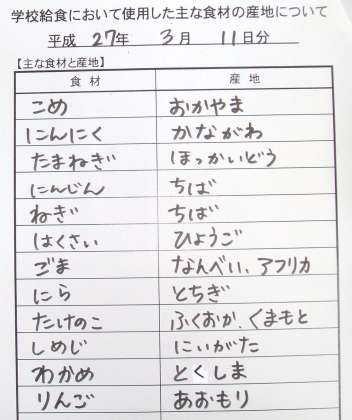 学校給食において使用した主な食材の産地について
平成 27年 3月 11日分
【主な食材と産地】
食材 産地
こめ おかやま
にんにく かながわ
たまねぎ ほっかいどう
にんじん ちば
ねぎ ちば
はくさい ひょうご
ごま なんべい、アフリカ
にら とちぎ
たけのこ ふくおか、くまもと
しめじ にいがた
わかめ とくしま
りんご あおもり